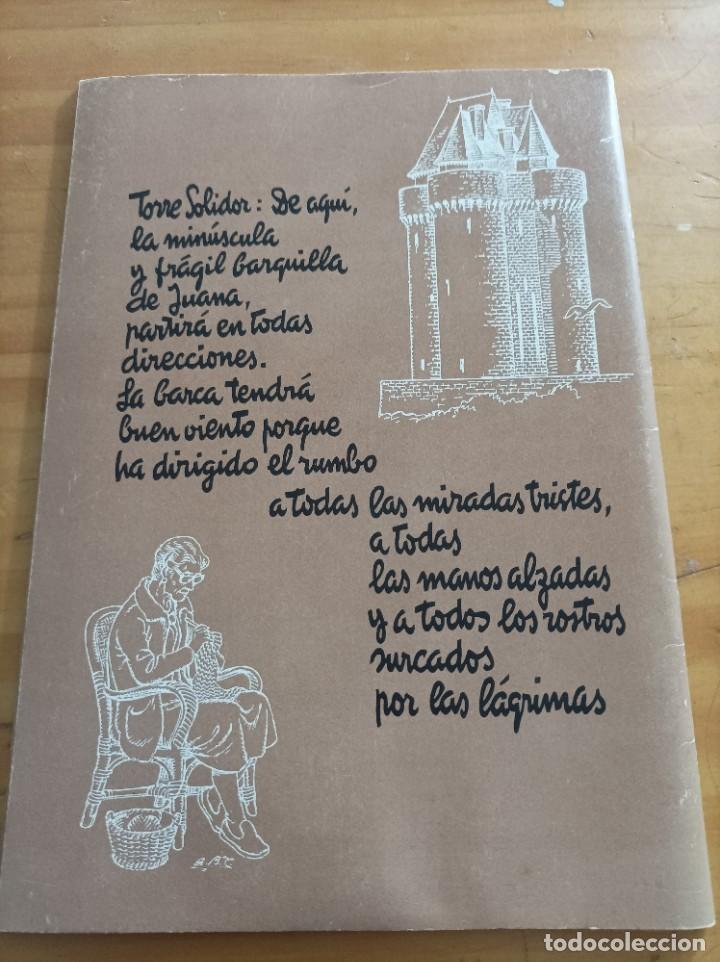 Torre Solidor: De aquí,
la minúscula
y frágil barquilla
de Juana,
partirá en todas
direcciones.
La barca tendrá
buen viento porque
ha dirigido el rumbo
a todas las miradas tristes,
a todas
las manos alzadas
y a todos los rostros
surcados
por las lágrimas
todocoleccion.net